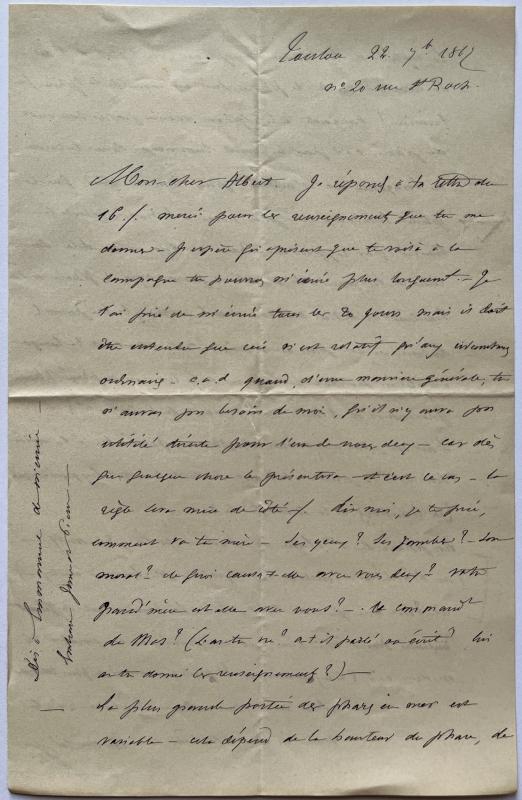 Toulon 22 7b 186
no 20 rue St Roch.
Mon cher Albert. Je réponds à ta lettre du
16./. merci pour les renseignement que tu me
donnes - J'espère qu'à présent que te voilà à la
campagne tu pourras m'écrire plus longuement. - Je
t'ai prié de m'écrire tous les 20 jours mais il doit
être entendu que ceci n'est relatif qu'aux circonstances
ordinaires - c.a.d quand, d'une manière générale, tu
n'auras pas besoin de moi, qu'il n'y aura pas
utilité directe pour l'un de nous deux - car dès
que quelque chose se présentera et c'est le cas - la
règle sera mise de côté ./. Dis moi, je te prie,
comment va ta mère - Ses yeux? Ses jambes? - Son
moral? de quoi cause-t-elle avec vous deux? votre
grand'mère est elle avec vous? - . le commandt
de Mas? (L'as tu vu? a t il parlé ou écrit? lui
as tu donné les renseignements?) -
La plus grande portée des phares en mer est
variable - cela dépend de la hauteur du phare, de
Dis à Emmanuel de m'écrire -